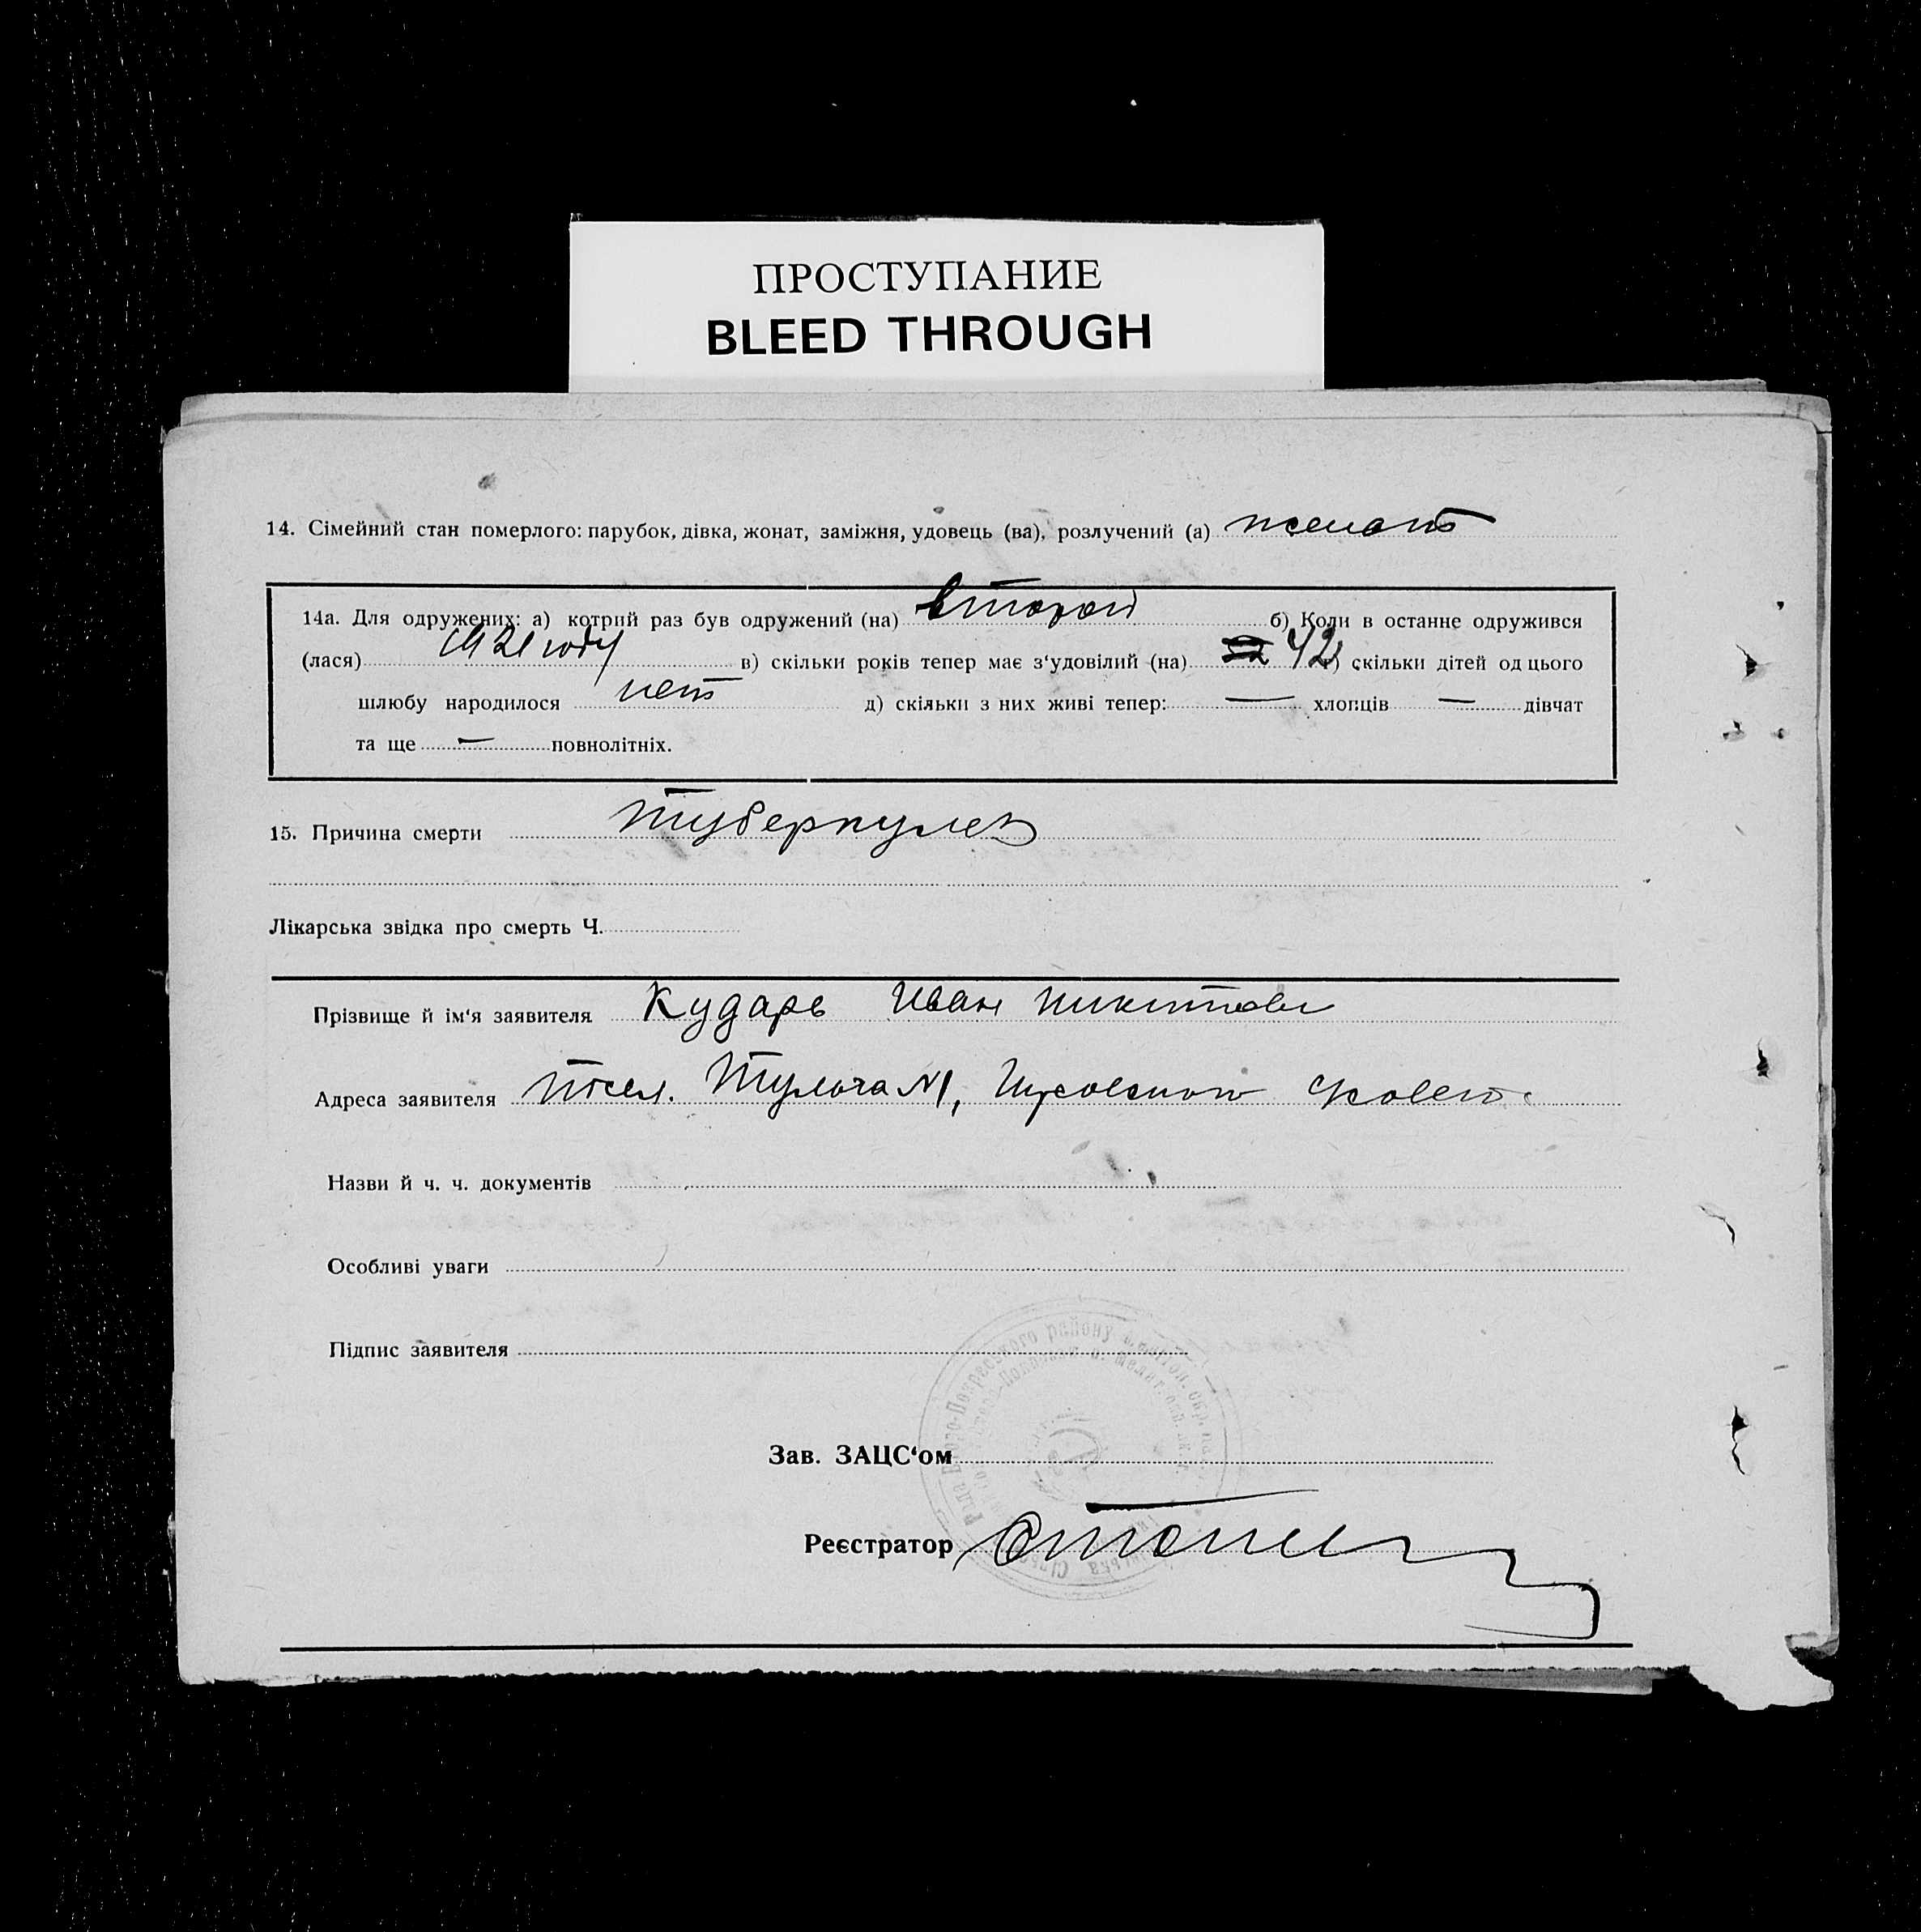 ПРОСТУПАНИЕ
BLEED THROUGH
14. Сімейний стан померлого: парубок, дівка, жонат, заміжня, удовець (ва), розлучений (а) женат
14а. Для одружених: а) котрий раз був одружений (на) второй б) Коли в останне одружився
(лася) 1921 году в) скільки років тепер має з‘удовілий (на) 42 г) скільки дітей од цього
шлюбу народилося нет д) скільки з них живі тепер: — хлопців — дівчат
та ще — повнолітніх.
15. Причина смерти туберкулез
Лікарська звідка про смерть Ч.
Прізвище й ім‘я заявителя Кударь Иван Никитов
Адреса заявителя посел. Тульча №1,
Назви й ч. ч. документів
Особливі уваги
Підпис заявителя
Зав. ЗАЦС‘ом
Реєстратор